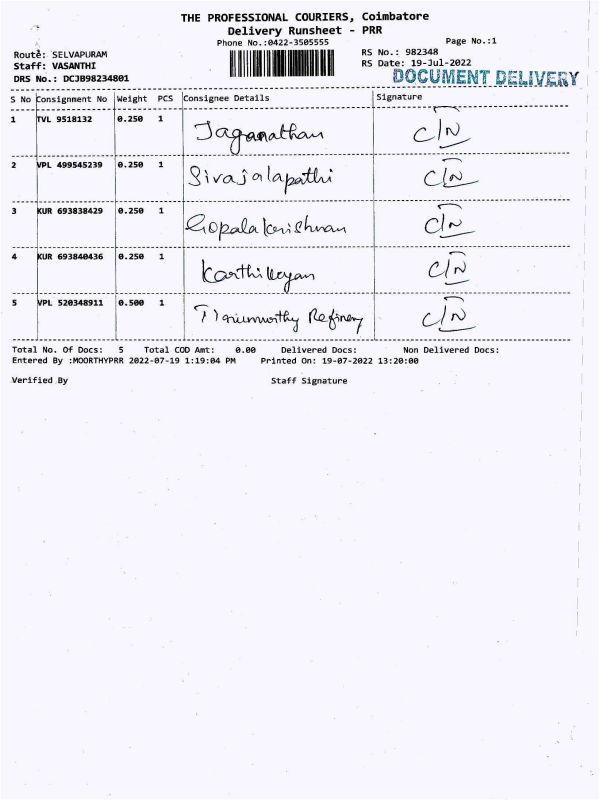 THE PROFESSIONAL COURIERS, Coimbatore
Delivery Runsheet - PRR
Phone No.:0422-3505555
Page No.:1
Route: SELVAPURAM
RS No.: 982348
Staff: VASANTHI
RS Date: 19-Jul-2022
DRS No.: DCJB98234801
DOCUMENT DELIVERY
S No Consignment No Weight PCS Consignee Details Signature
1 TVL 9518132 0.250 1 Jaganathan C/N
2 VPL 499545239 0.250 1 Sivajalapathi C/N
3 KUR 693838429 0.250 1 Gopalakrishnan C/N
4 KUR 693840436 0.250 1 Karthikeyan C/N
5 VPL 520348911 0.500 1 Refinery C/N
Total No. Of Docs: 5 Total COD Amt: 0.00 Delivered Docs: Non Delivered Docs:
Entered By :MOORTHYPRR 2022-07-19 1:19:04 PM Printed On: 19-07-2022 13:20:00
Verified By Staff Signature